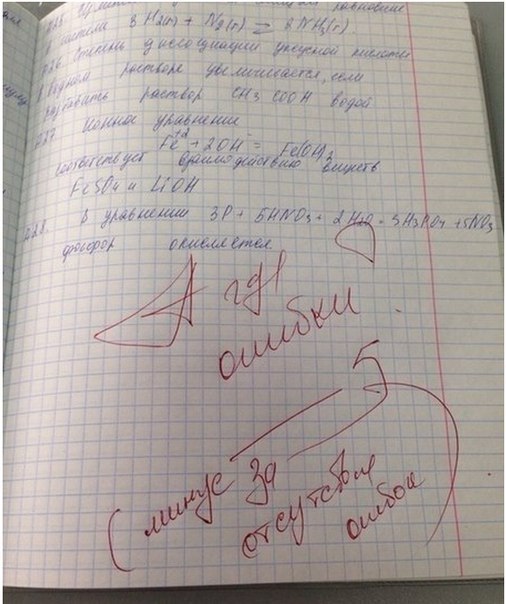 системе 3 H2(г) + N2(г) ⇄ 2 NH3(г).
А26. Степень диссоциации уксусной кислоты
в водном растворе увеличивается, если
разбавить раствор CH3COOH водой
А27. Ионное уравнение
Fe+2 + 2OH- = Fe(OH)2
соответствует взаимодействию веществ
FeSO4 и LiOH
А28. В уравнении 3P + 5HNO3 + 2H2O = 3H3PO4 + 5NO
фосфор окисляется.
А где
ошибки ?
5-
(минус за
отсутствие
ошибок)